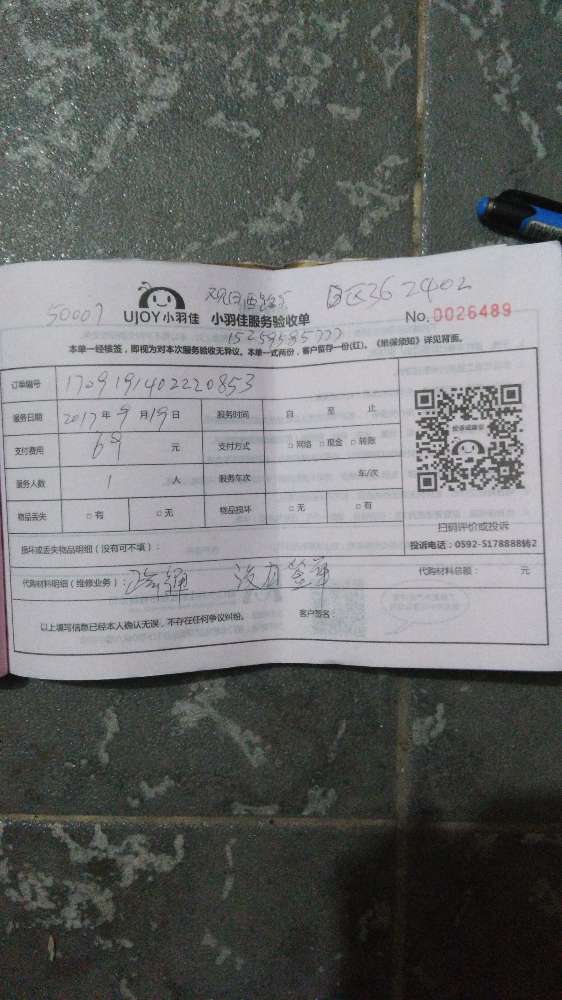 观日西路 B区36 2402
50007 UJOY小羽佳 小羽佳服务验收单 No. 0026489
15259595777
本单一经续签，即视为对本次服务验收无异议。本单一式两份，客户留存一份(红)。《维保须知》详见背面。
订单编号 1709191402220853
服务日期 2017年9月19日 服务时间 自 至 止
支付费用 69 元 支付方式 □网络 □现金 □转账
服务人数 1 人 服务车次 车/次
物品丢失 □有 □无 物品损坏 □无 □有
扫码评价或投诉
投诉电话：0592-5178888转2
损坏或丢失物品明细（没有可不填）：
代购材料明细（维修业务）： 没有签单 代购材料总额： 元
以上填写信息已经本人确认无误，不存在任何争议纠纷。 客户签名：